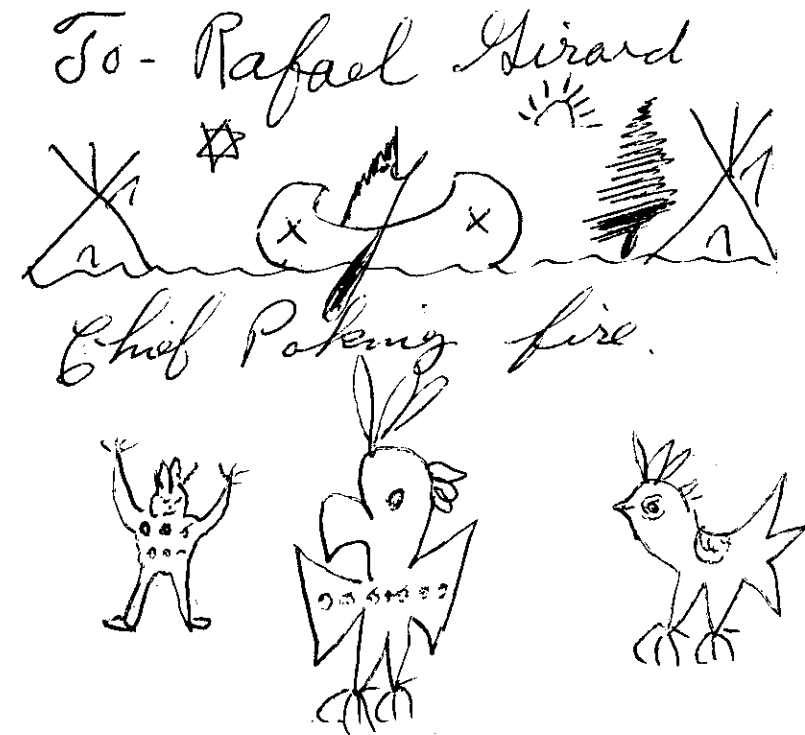 To- Rafael Girard
Chief Poking fire.